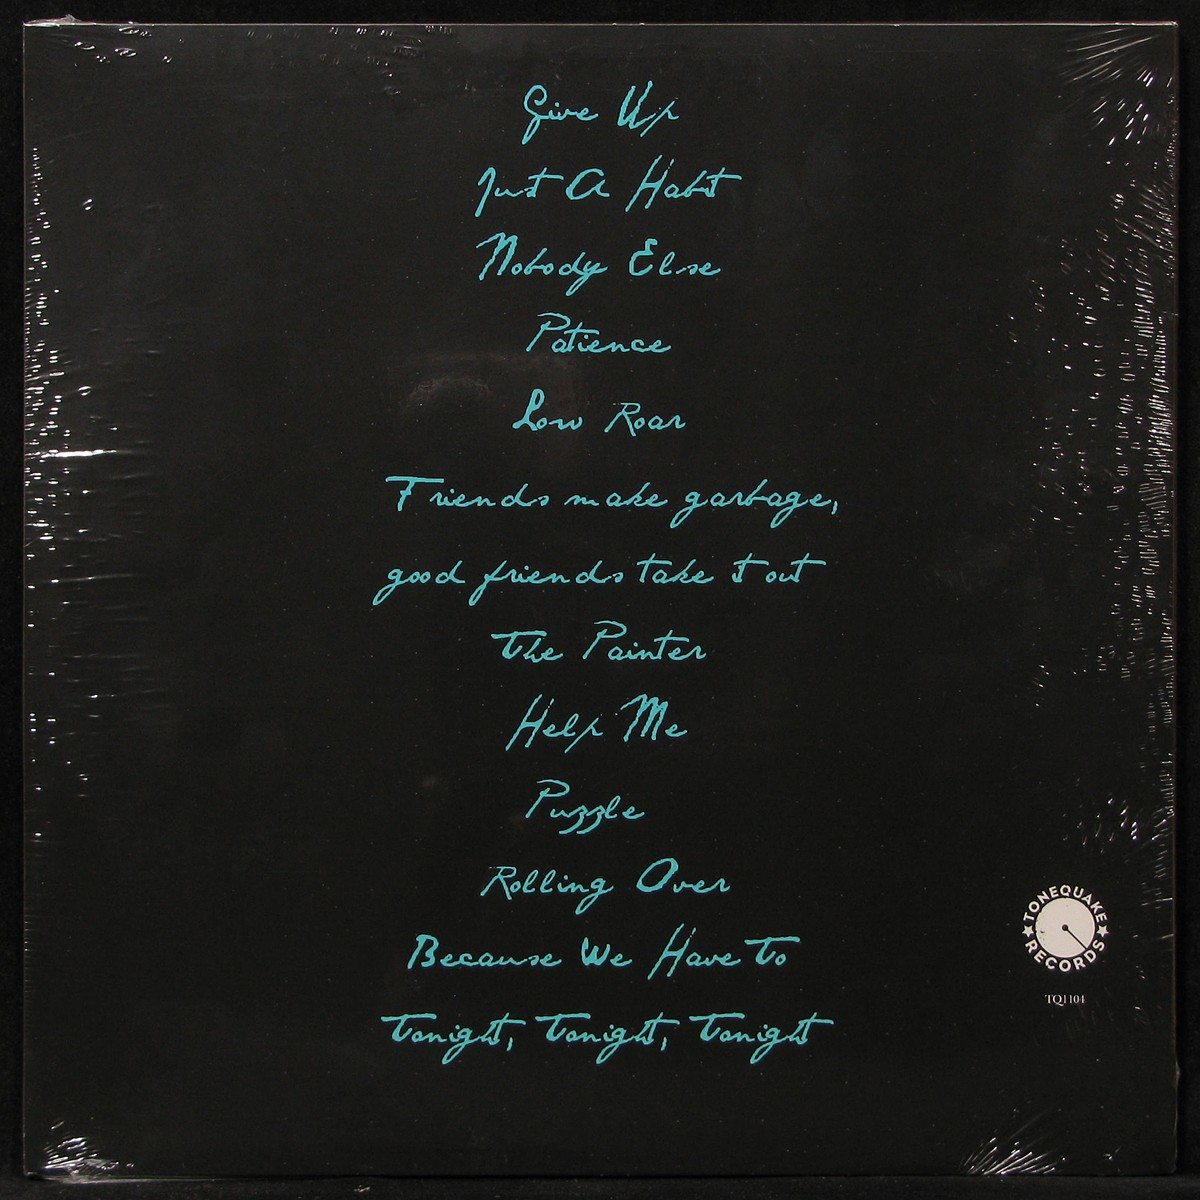 Give Up
Just A Habit
Nobody Else
Patience
Low Roar
Friends make garbage,
good friends take it out
The Painter
Help Me
Puzzle
Rolling Over
Because We Have To
Tonight, Tonight, Tonight
TONEQUAKE
RECORDS
TQ1104